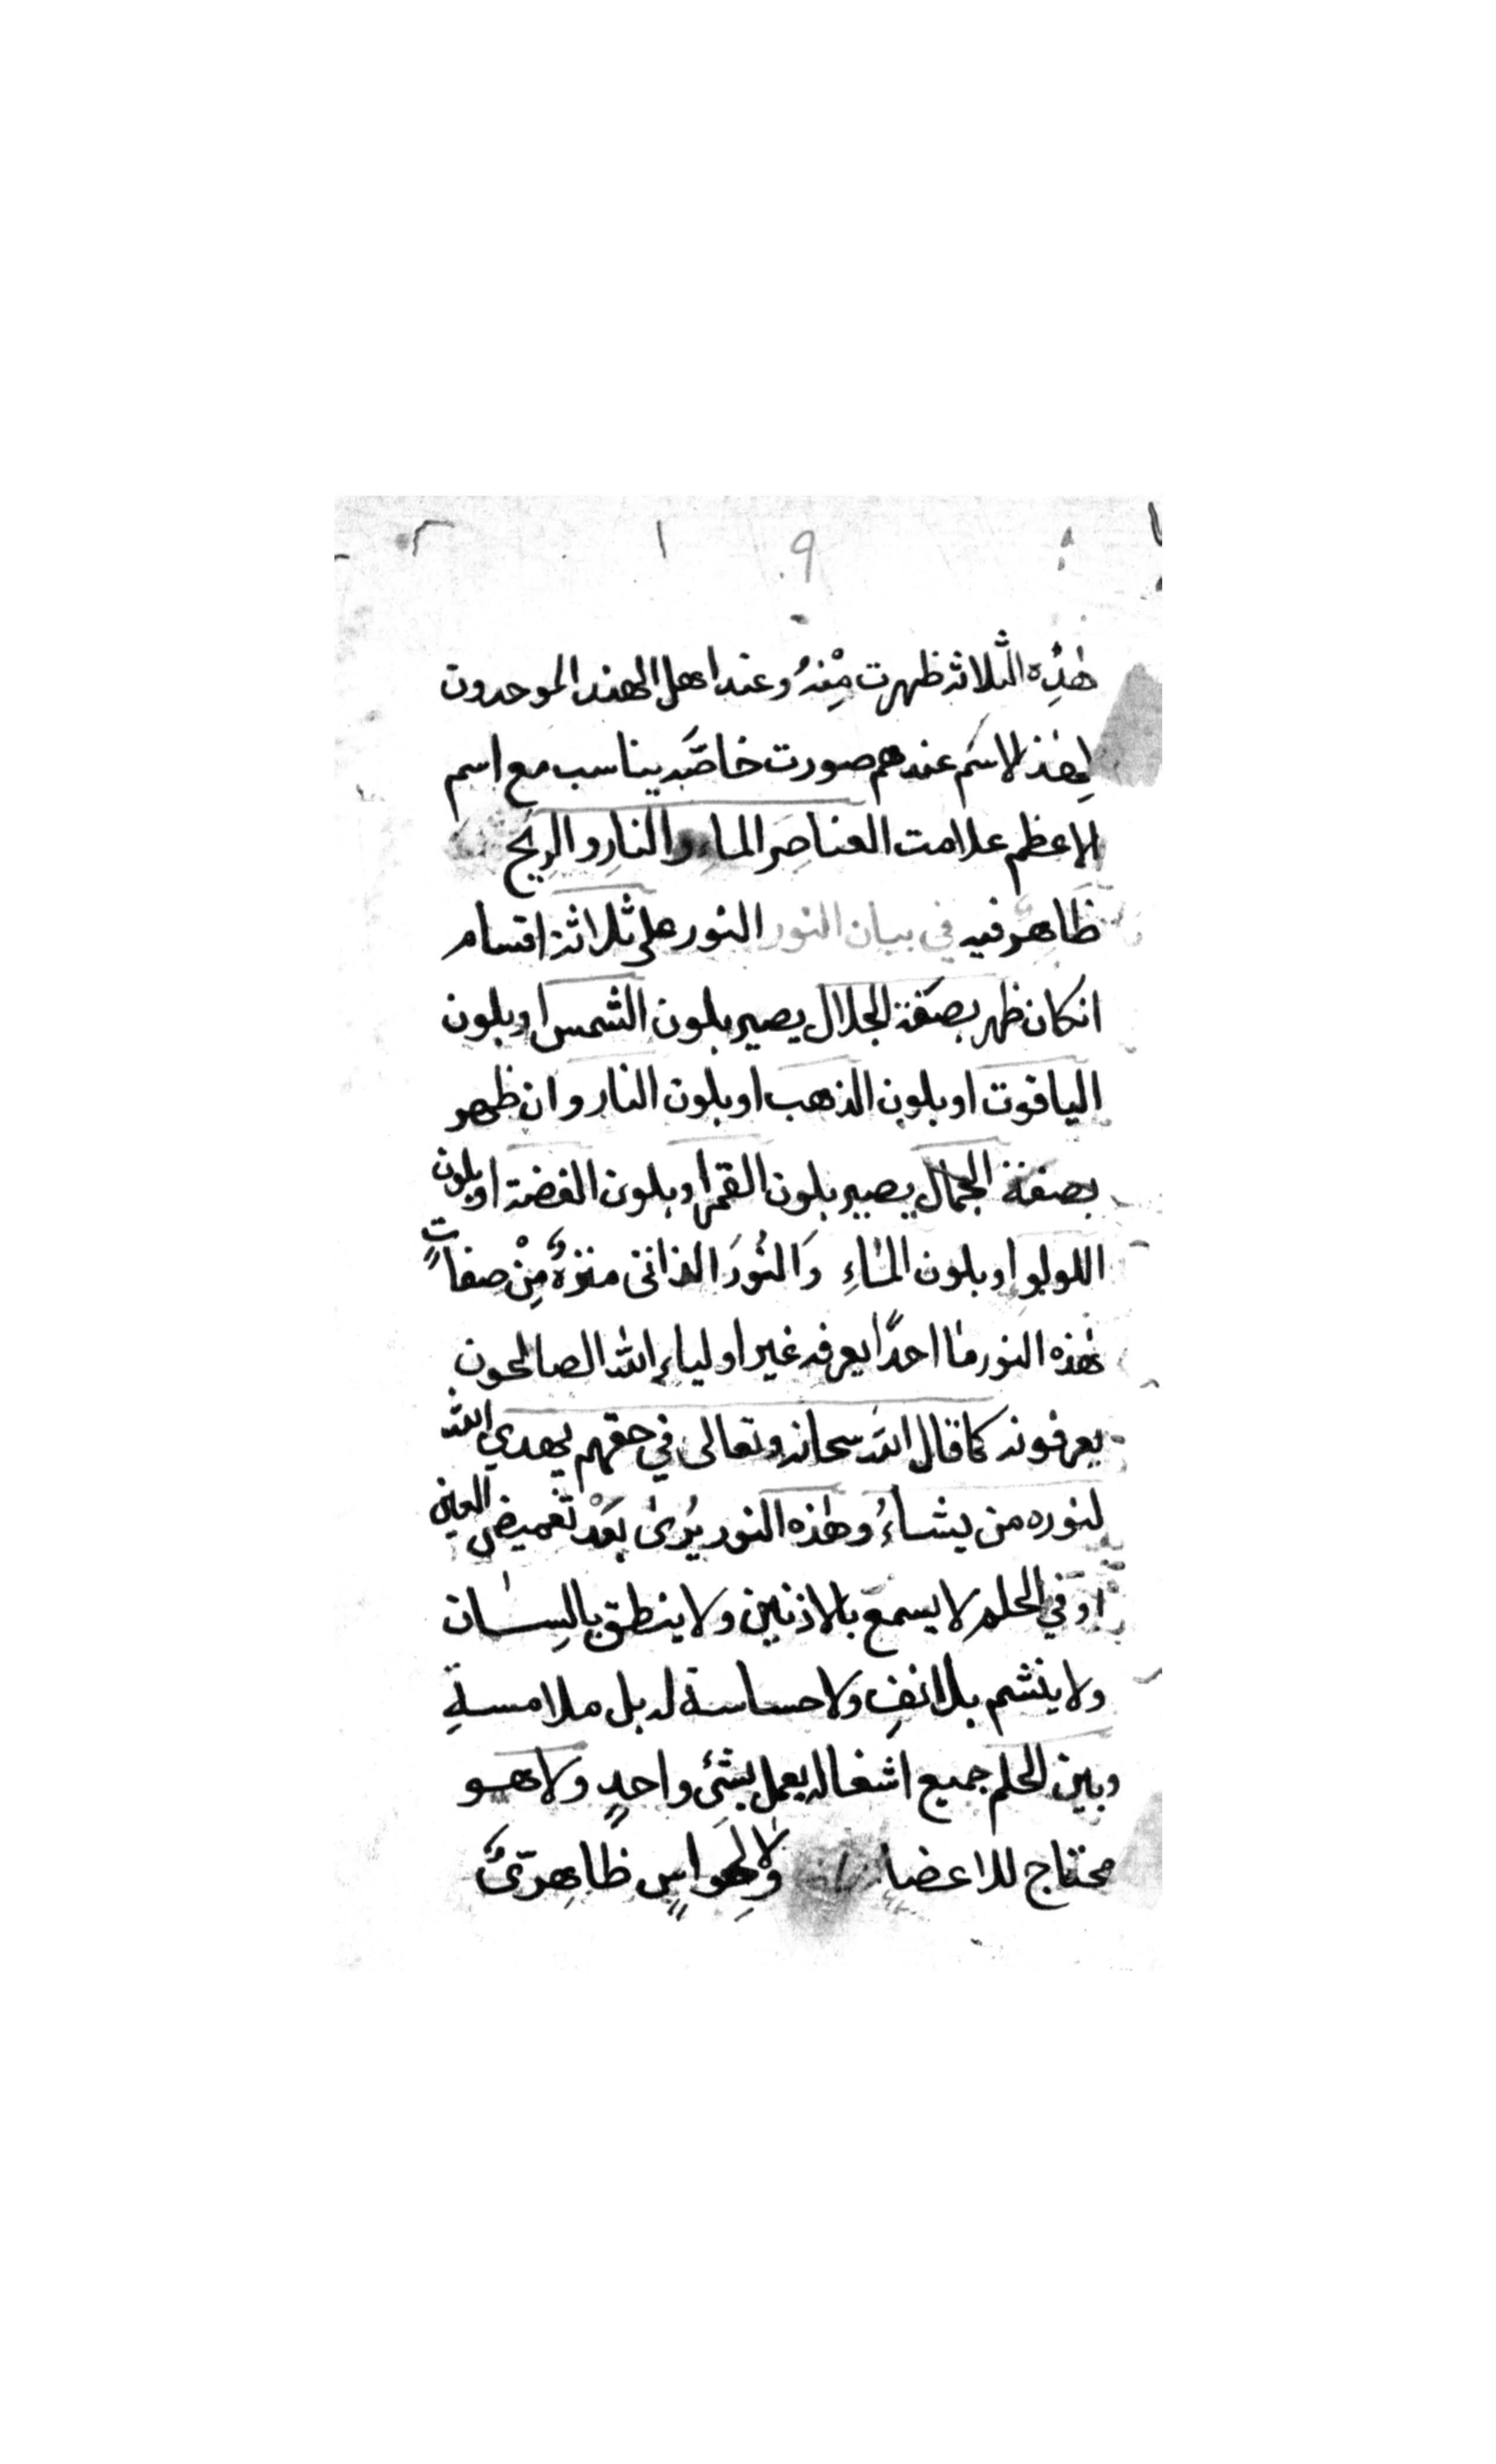 ٩
هٰذِه الثّلاثه ظهرت مِنْهُ وعند اهل الهند الموحدون
لِهٰذ لاسَم عندهم صورت خاصَّه يناسب مع اسم
الاعظم علامت العناصِر الماء والنارِ والرِيح
ظاهِر فيه في بيان النور النور على ثلاثة اقسام
انكان ظهر بصَفة الجلال يصير بلون الشمس اوبلون
الياقوت اوبلون الذهب اوبلون النار وان ظهر
بصفة الجمال يصير بلون القمر اوبلون الفضة اوبلون
اللولو اوبلون المٰاءِ وَالنُورَ الذاتى منزهٌ مِنْ صفاتٍ
هٰذه النور مٰا احدًا يعرفه غير اولياءِ الله الصالحون
يعرفونه كما قال الله سبحانه وتعالى في حقهم يهدي الله
لنوره من يشاءُ وهٰذه النور يُرىٰ بَعَدْ تغميض العين
اوفي الحلم لا يسمعَ بالاذنين ولا ينطق بالِسٰان
ولا ينشم بلانفِ ولا حساسة له بل ملامسةِ
وبين الحلم جميع اشغاله يعمل بشىٔ واحدٍ ولا هو
محتاج للاعضا ولا لِحَواسٍ ظاهِرىٌ